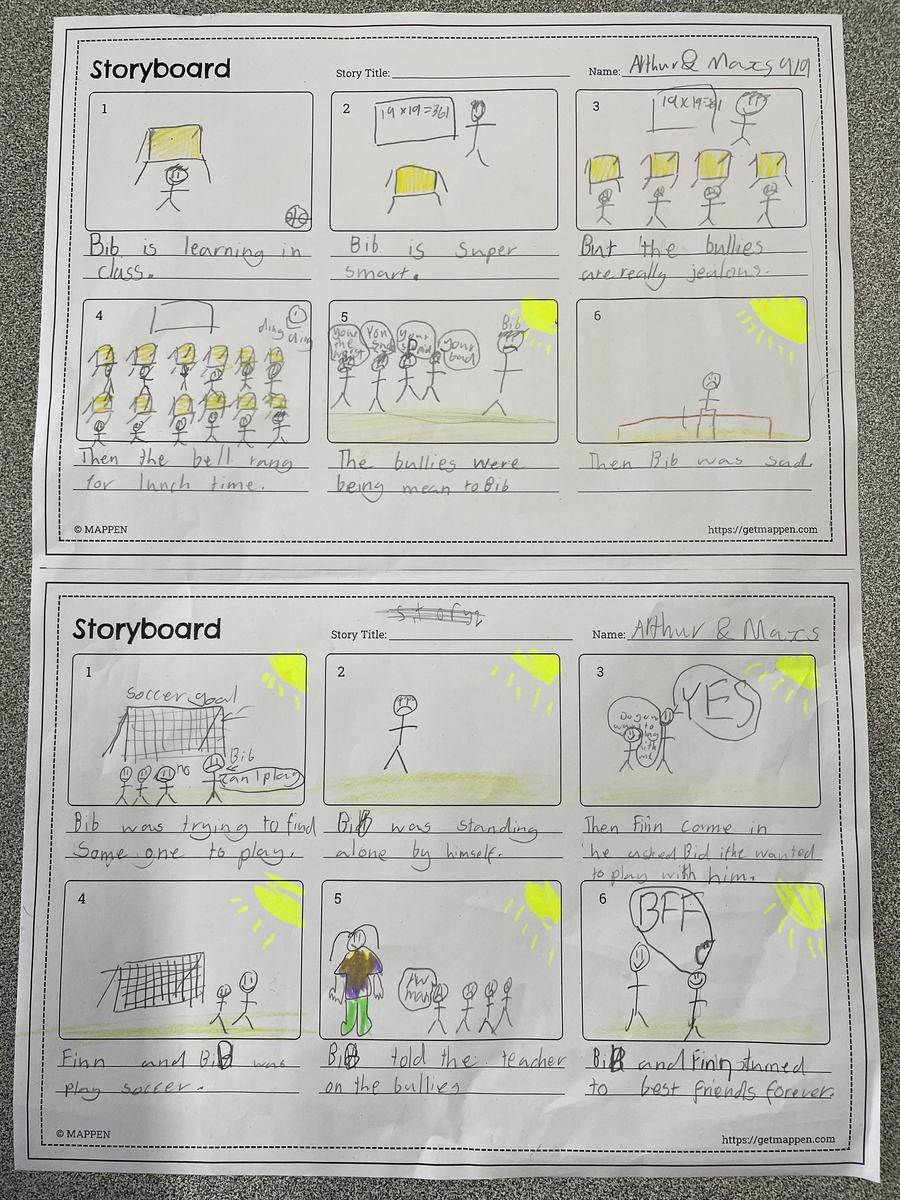 Storyboard
Story Title:
Name: Arthur & Maxs 919
1
2
19x19=361
3
19x19=361
Bib is learning in
class.
Bib is super
smart.
But the bullies
are really jealous.
4
ding
ding
5
your
the
You
your
your
bad
Bib
6
Then the bell rang
for lunch time.
The bullies were
being mean to Bib
Then Bib was sad.
© MAPPEN
https://getmappen.com
Storyboard
story
Story Title:
Name: Arthur & Maxs
1
soccer goal
no
Bib
can I play
2
3
Do you
want to
play
with
me
YES
Bib was trying to find
Some one to play.
Bib was standing
alone by himself.
Then Finn came in
he asked Bid if he wanted
to play with him.
4
5
Aw
man
6
BFF
Finn and Bib was
play soccer.
Bib told the teacher
on the bullies
Bib and Finn turned
to best friends forever.
© MAPPEN
https://getmappen.com